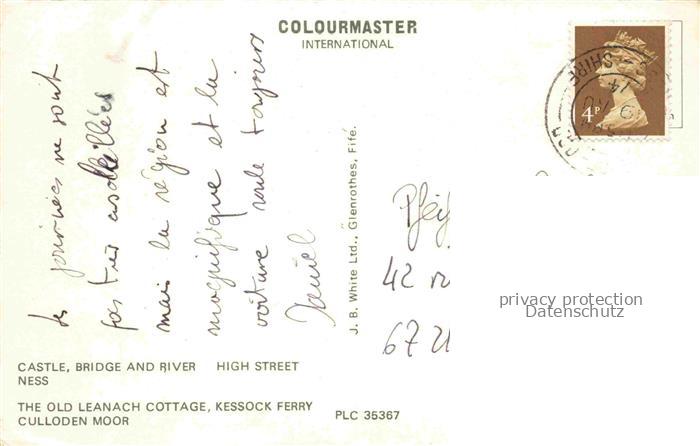 COLOURMASTER
INTERNATIONAL
4P
SHIRE
14
les journées ne sont
pas très ensoleillées
mais la région est
magnifique et la
voiture roule toujours
Daniel
J. B. White Ltd., Glenrothes, Fife.
42
67
privacy protection
Datenschutz
CASTLE, BRIDGE AND RIVER NESS
HIGH STREET
THE OLD LEANACH COTTAGE, CULLODEN MOOR
KESSOCK FERRY
PLC 35367